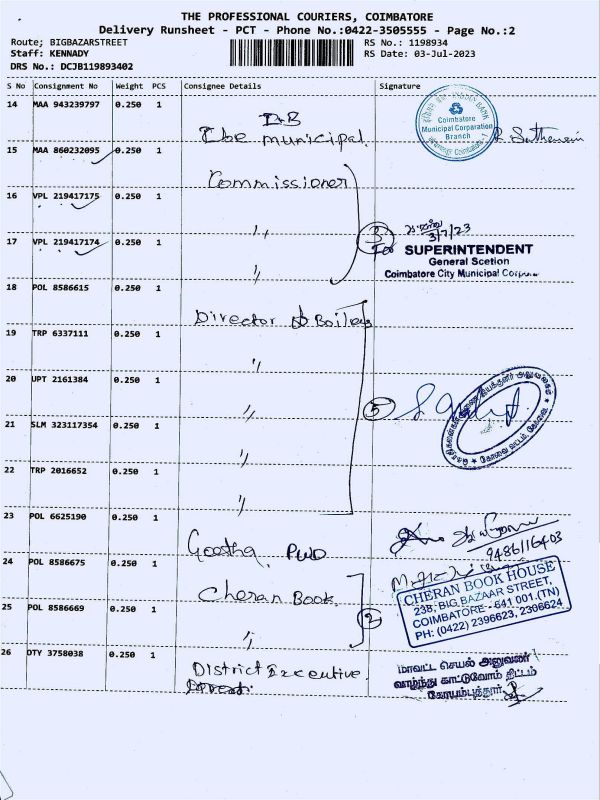 THE PROFESSIONAL COURIERS, COIMBATORE
Delivery Runsheet - PCT - Phone No.:0422-3505555 - Page No.:2
Route; BIGBAZARSTREET
RS No.: 1198934
Staff: KENNADY
RS Date: 03-Jul-2023
DRS No.: DCJB119893402
S No Consignment No Weight PCS Consignee Details Signature
14 MAA 943239797 0.250 1
The Municipal
Coimbatore
Municipal Corparation
Branch
15 MAA 860232095 0.250 1
Commissioner
16 VPL 219417175 0.250 1
"
3/7/23
3
17 VPL 219417174 0.250 1
"
SUPERINTENDENT
General Scetion
Coimbatore City Municipal
18 POL 8586615 0.250 1
Director of Boilers
19 TRP 6337111 0.250 1
"
20 UPT 2161384 0.250 1
"
5
21 SLM 323117354 0.250 1
"
22 TRP 2016652 0.250 1
"
23 POL 6625190 0.250 1
Geetha PWD
9486116403
24 POL 8586675 0.250 1
Cheran Book
CHERAN BOOK HOUSE
238, BIG BAZAAR STREET,
COIMBATORE - 641 001.(TN)
PH: (0422) 2396623, 2306624
25 POL 8586669 0.250 1
"
2
26 DTY 3758038 0.250 1
District Executive
மாவட்ட செயல் அலுவலர்
வாழ்ந்து காட்டுவோம் திட்டம்
கோயம்புத்தூர்